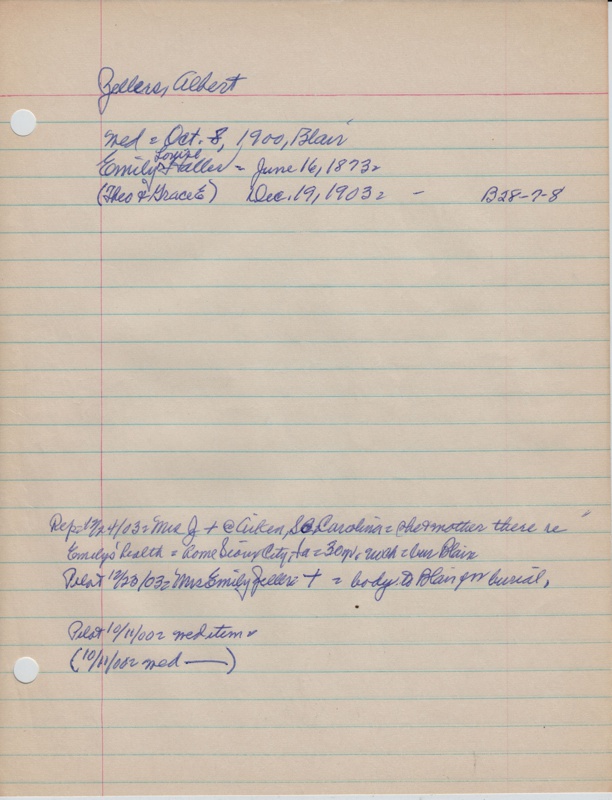 Zellers, Albert
wed = Oct. 8, 1900, Blair
Louise
Emily Haller = June 16, 1873 =
(Theo & Grace E) Dec. 19, 1903 = - B28-7-8
Rep = 12/24/03 = Mrs Z + @ Aiken, S. Carolina = she & mother there re
Emily's health = home Sioux City, Ia = 30 yr. = bur Blair
Pilot 12/23/03 = Mrs Emily Zellers + = body to Blair for burial,
Pilot 10/11/00 = wed item =
(10/11/00 = wed —)